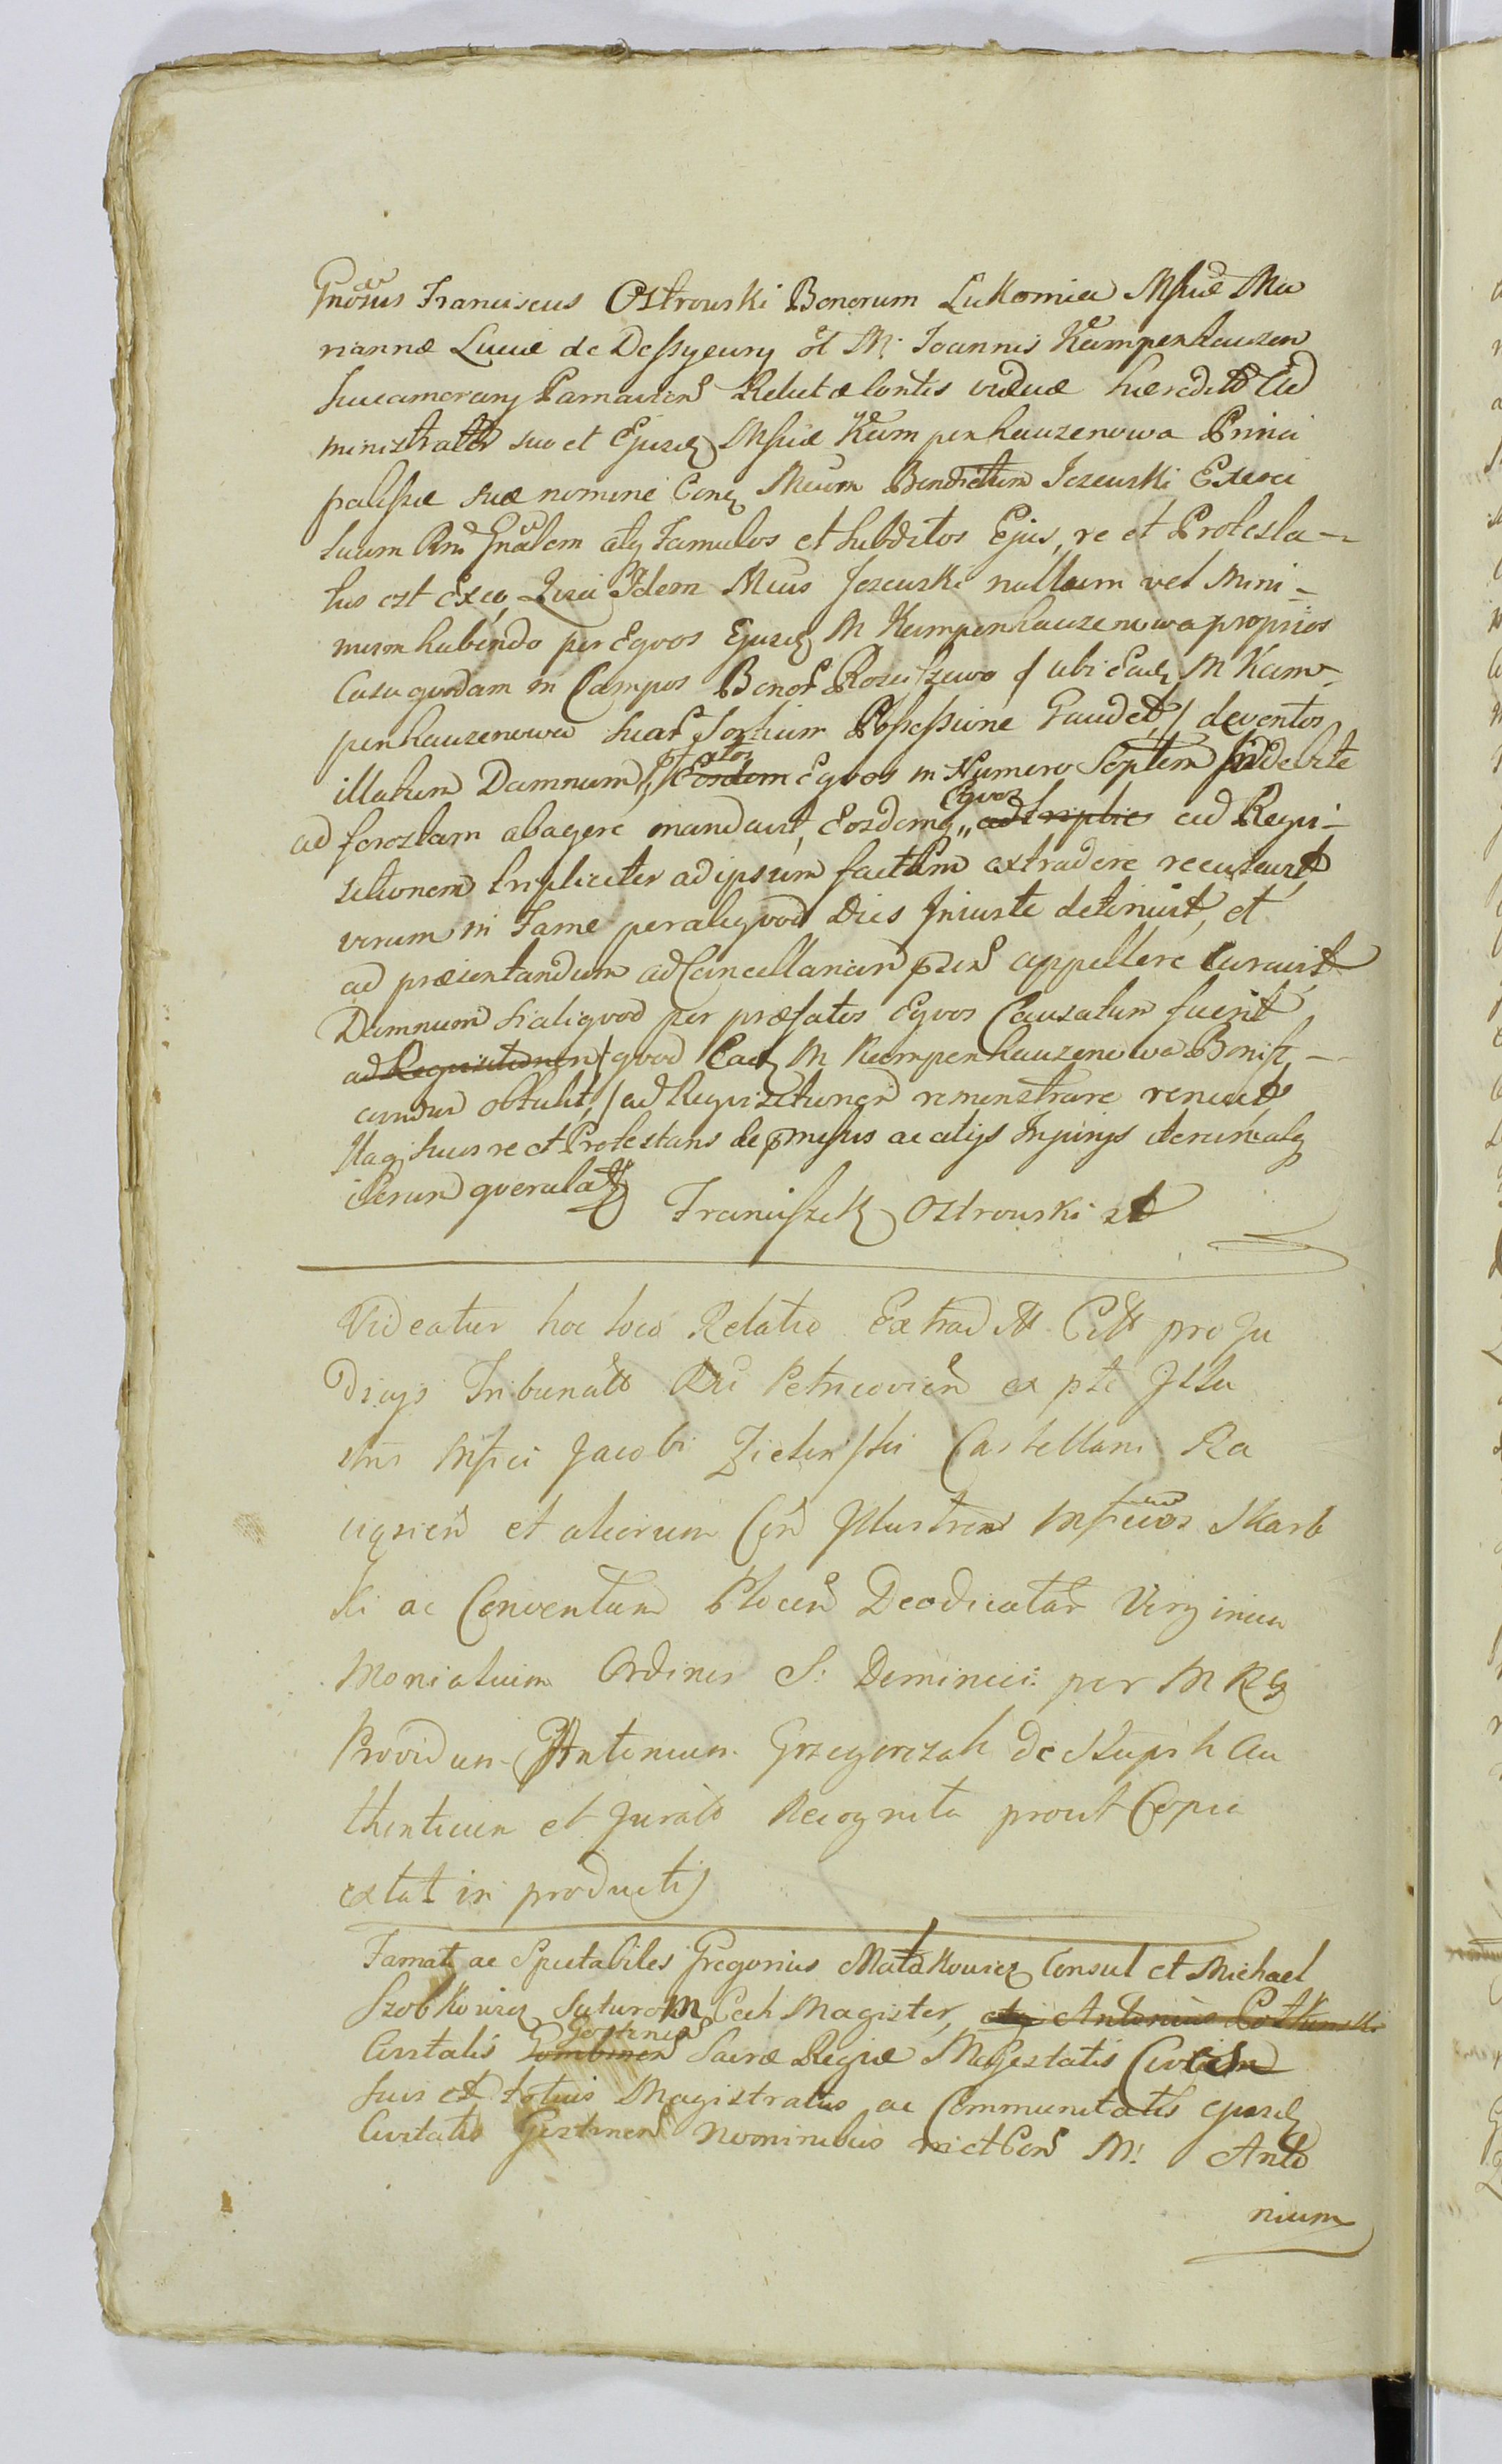 Gnosus Franciscus Ostrowski Bonorum Lukomia Mficæ Ma
riannæ Luciæ de Dessyeurÿ ol M. Joannis Kampenhauzen
Succamerarÿ Parnavien Relictæ lontis viduæ hæredit Ad
ministrator suo et Ejusdq Mficæ Kampenhauzenowa Princi
palissæ suæ nomine Conq Mcum Benedictum Jezewski Exerci
tuum Rni Gnalem atq Famulos et Subditos Ejus, re et Protesta-
tus est Exeo, Quia Idem Mcus Jezewski nullum vel mini-
mum habendo per Eqvos Ejusdq M Kampenhauzenowa proprios
Casu quodam in Campos Bonor Rosciszewo / ubi Eadq M Kam-
penhauzenowa suar Sortium Possessione Gaudet / deventos
illatum Damnum, Eosdem Eqvos in Numero Septem Indebite
ad forostam abagere mandavit, Eosdemq Eqvos ad triplic ad Requi-
sitionem tripliciter ad ipsum factum extradere recusavit
verum in Fame per aliqvod Dies Injuste detinuit, et
ad præsentandum ad Cancellariam pzen appellere Curavit
Damnum si aliqvod per præfatos Eqvos Causatum fuerit
ad Requisitionem / qvod Eadq M Kampenhauzenowa Bonifi-
candum obtulit / ad Requisitionem remonstrare renuit
Itaq suus re et Protestans de pmissis ac alijs Injurijs iterumatq
iterum qverulatur
Franciszek Ostrowski
Videatur hoc loco Relatio Extrad Cttt pro Ju
dicijs Tribunalt Rni Petricovien ex pte Illu
stris Mfici Jacobi Zielinski Castellani Ra
ciązien et aliorum Con Illustrem Mficos Skarb
ki ac Conventum Plocen Deodicatar Virginum
Monialium Ordinis S. Dominici per M R G
Providum Antonium Grzegorzak de Slupsk Au
thenticum et Jurato Recognita prout Copia
extat in productis
Famati ac Spectabiles Gregorius Matakowicz Consul et Michael
Szobkowicz Sutorum Cech Magister, atq Antonius Potkanski
Civitatis Gombinen Gostinen Sacræ Regiæ Majestatis Cives
suis et totius Magistratus ac Communitatis ejusdq
Civitatis Gostinen Nominibus ri et Con M. Anto
nium